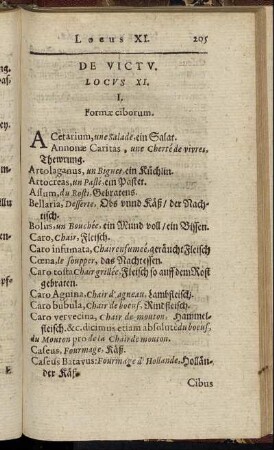 Locus XI. 205
DE VICTV.
LOCVS XI.
I.
Formæ ciborum.
ACetarium, une Salade, ein Salat.
Annonæ Caritas, une Cherté de vivres,
Thewrung.
Artolaganus, un Bignet, ein Küchlin.
Artocreas, un Pasté, ein Pastet.
Assum, du Rosti, Gebratens.
Bellaria, Desserte, Obs vnnd Käß/ der Nach-
tisch.
Bolus, un Bouchée, ein Mund voll/ ein Bissen.
Caro, Chair, Fleisch.
Caro infumata, Chair enfumeé, geräucht Fleisch
Cœna, le soupper, das Nachtessen.
Caro tosta Chair grillée, Fleisch so auff dem Rost
gebraten.
Caro Agnina, Chair d'agneau, Lambfleisch.
Caro bubula, Chair de boeuf, Rindfleisch.
Caro vervecina, Chair de mouton, Hammel-
fleisch. &c. dicimus etiam absolutè du boeuf,
du Mouton pro de la Chair de mouton.
Caseus, Fourmage, Käß.
Caseus Batavus: Fourmage d'Hollande, Hollän-
der Käß.
Cibus